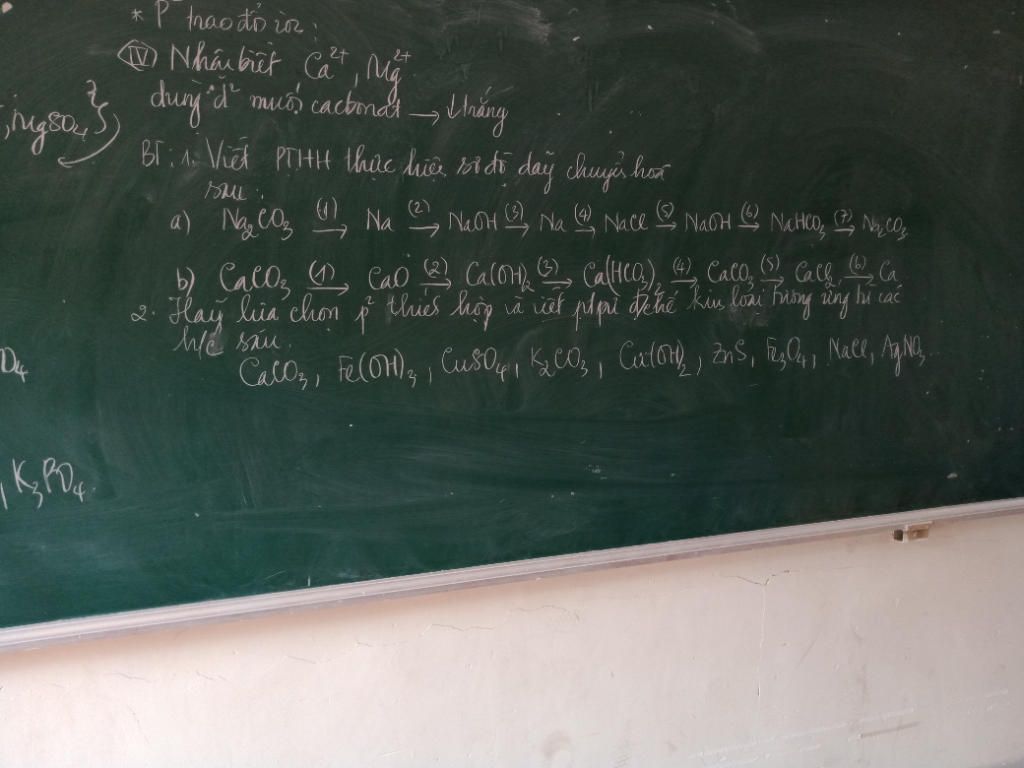 * P² trao đổi ion:
IV Nhận biết Ca²⁺, Mg²⁺
dùng d² muối cacbonat → ↓ trắng
, MgSO₄ }
BT: 1. Viết PTHH thực hiện sơ đồ dãy chuyển hoá
sau:
a) Na₂CO₃ (1)→ Na (2)→ NaOH (3)→ Na (4)→ NaCl (5)→ NaOH (6)→ NaHCO₃ (7)→ Na₂CO₃
b) CaCO₃ (1)→ CaO (2)→ Ca(OH)₂ (3)→ Ca(HCO₃)₂ (4)→ CaCO₃ (5)→ CaCl₂ (6)→ Ca
2. Hãy lựa chọn p² thích hợp và viết ptpứ để đ/c kim loại tương ứng từ các
h/c sau.
CaCO₃, Fe(OH)₃, CuSO₄, K₂CO₃, Cu(OH)₂, ZnS, Fe₃O₄, NaCl, AgNO₃
O₄
, K₃PO₄